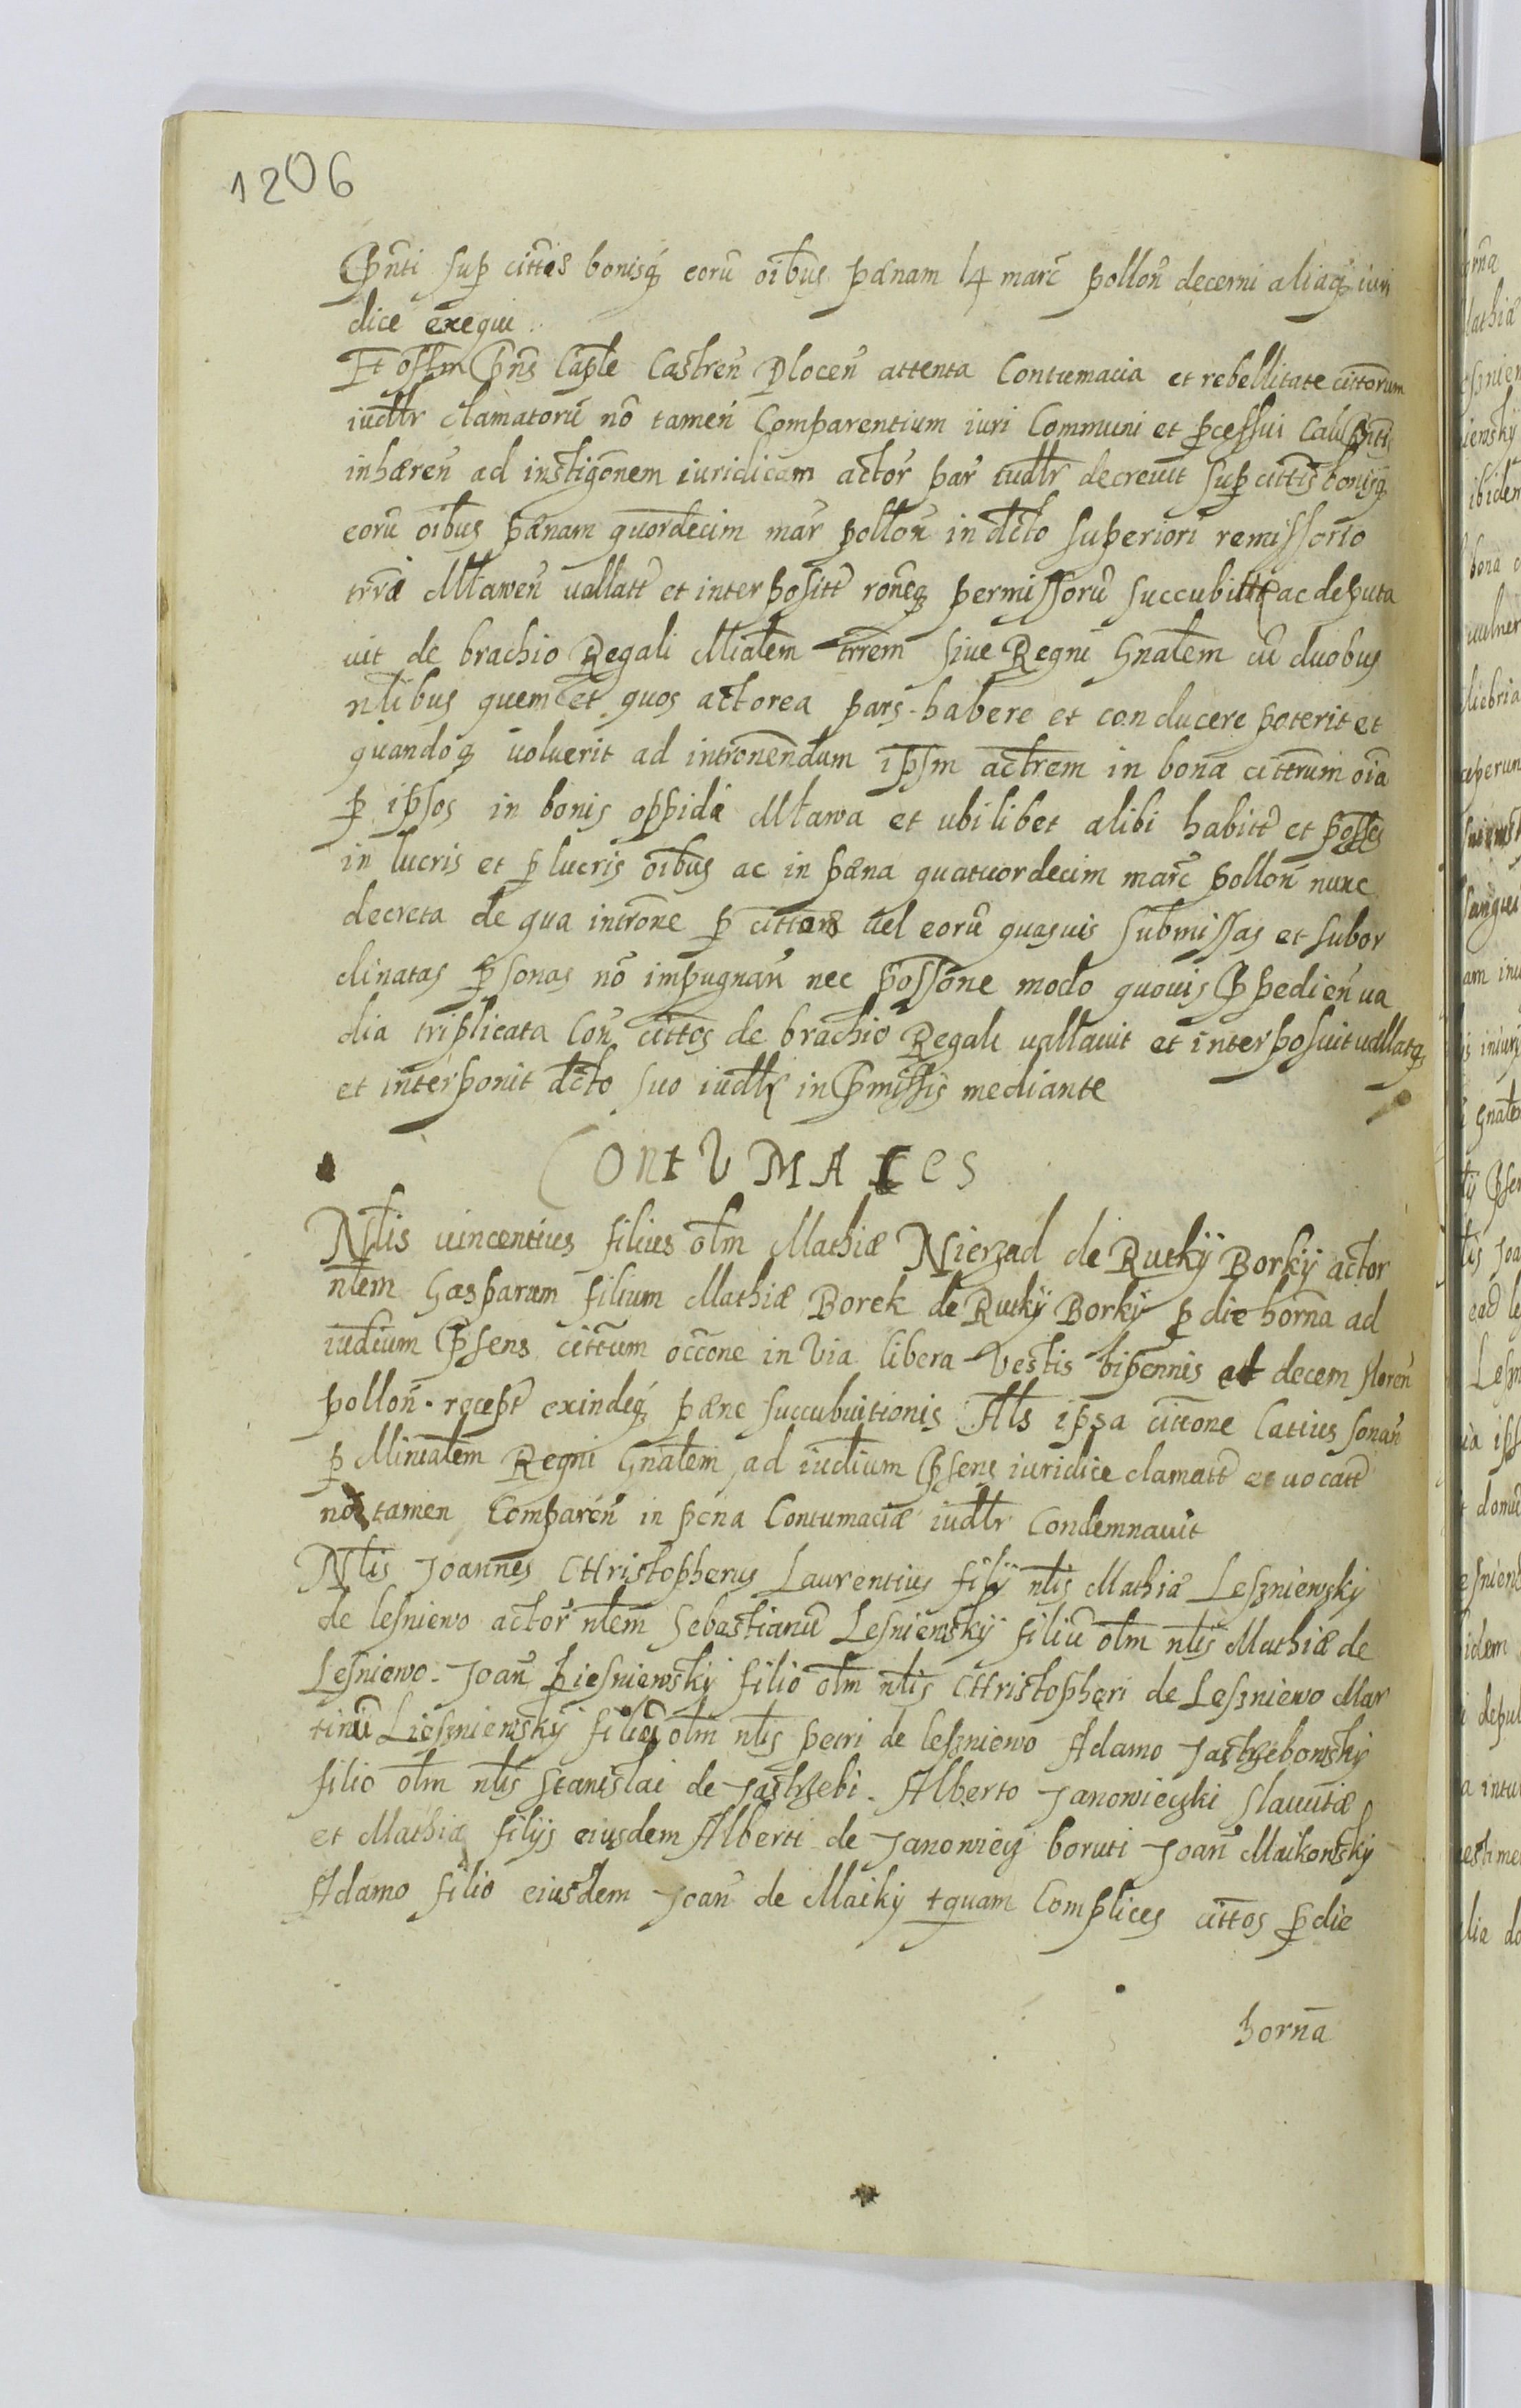 1206
Pn̄ti sup cittos bonisq eorū oībus pænam 14 marc̄ pollon̄ decerni aliaq iuri
dice exequi
Et offm Pn̄s Caple Castren̄ Plocen̄ attenta Contumacia et rebellitate cittorum
iudlr clamatorū nō tamen Comparentium iuri Communi et pcessui Caus
inhæren̄ ad instigōnem iuridicam actor̄ par iudlr decreuit sup cittis bonisq
eorū oībus pænam quordecim mar pollon̄ in dcto superiori remissorio
trrā Mlawen̄ vallatt et interpositt rōneq permissorū succubitt ac deputa
uit de brachio Regali Mialem trrem siue Regni Gnalem cū duobus
nlibus quem et quos actorea pars habere et conducere poterit et
quandoq uoluerit ad intronendum ipsm actrem in bona cittrum oīa
p ipsos in bonis oppida Mlawa et ubilibet alibi habitt et posses
in lucris et plucris oībus ac in pæna quatuordecim marc̄ pollon̄ nunc
decreta de qua intrōne p cittos uel eorū quasuis submissas et subor
dinatas psonas nō impugnan̄ nec possōne modo quouis Ppedien̄ ua
dia triplicata Con̄ cittos de brachio Regali uallauit et interposuit uallatq
et interponit dcto suo iudlr in Pmissis mediante
Contumaces
Nlis uincentius filius olm Mathiæ Nierzad de Rutkÿ Borkÿ actor
nlem Gasparum filium Mathiæ Borek de Rutkÿ Borkÿ p die horna ad
iudium Psens cittum occōne in Via libera Vestis bipennis et decem floren̄
pollon̄ recept exindeq pæne succubuitionis Als ipsa cittone Latius sonan̄
p Minialem Regni Gnalem ad iudium Psens iuridice clamatt et uocatt
nō tamen Comparen̄ in pena Contumaciæ iudlr Condemnauit
Nlis Joannes CHristopherus Laurentius filÿ nlis Mathiæ Leszniewskÿ
de lesniewo actor̄ nlem Sebastianū Lesniewskÿ filiū olm nlis Mathiæ de
Lesniewo Joan̄ piesniewskÿ filio olm nlis CHristopheri de Leszniewo Mar
tinū Lieszniewskÿ filiū olm nlis petri de leszniewo Adamo Jastzebowskÿ
filio olm nlis Stanislai de Jastrzebi Alberto Janowieczki Slauutæ
et Mathiæ filÿs eiusdem Alberti de Janowiecz boruti Joan̄ Maikowskÿ
Adamo filio eiusdem Joan̄ de Maikÿ tquam Complices cittos p die
horn̄a